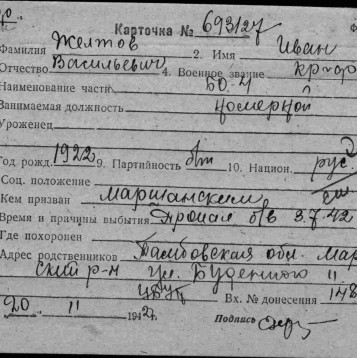 Карточка № 693127
Фамилия Желтов 2. Имя Иван
Отчество Васильевич 4. Военное звание кр-ар
Наименование части
Занимаемая должность номерной
Уроженец
Год рожд. 1922 9. Партийность б/п 10. Национ. рус.
Соц. положение
Кем призван Маршанским
Время и причины выбытия Пропал б/в 3.7.42
Где похоронен
Адрес родственников Тамбовская обл. Мар
ский р-н ул. Буденного 11
Вх. № донесения 148
20 11 194 Подпись